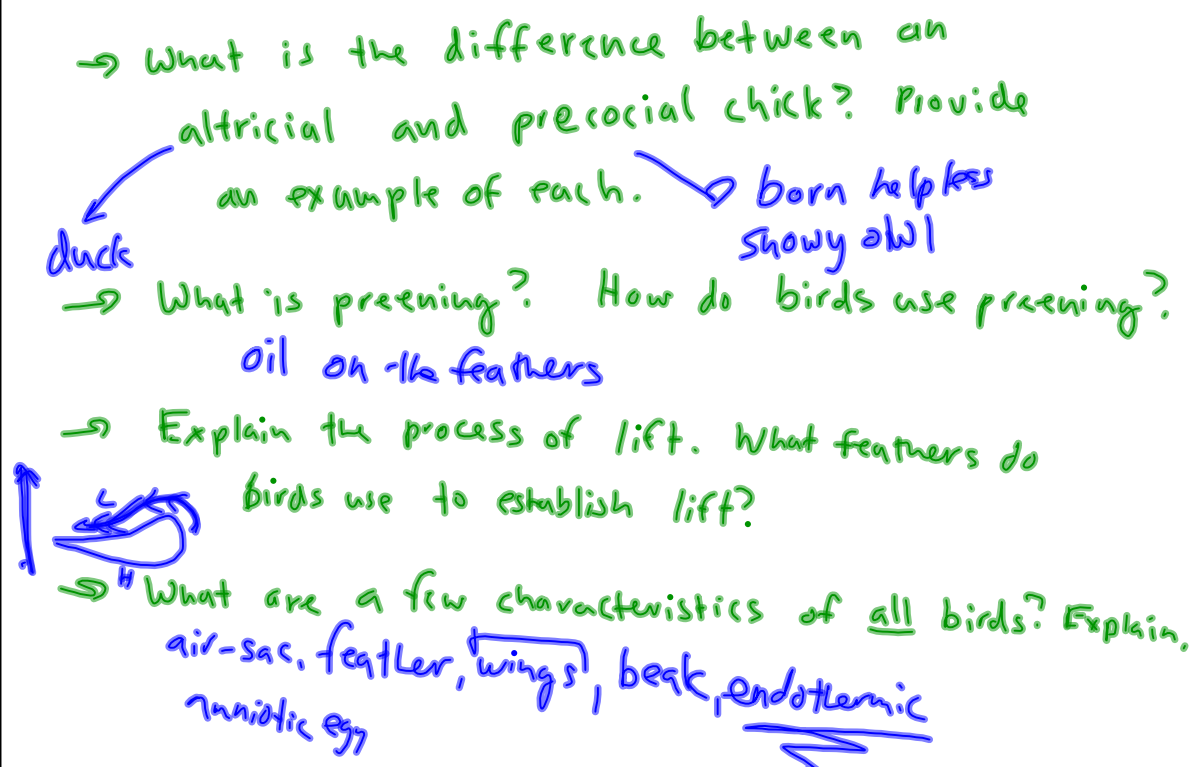 → What is the difference between an
altricial and precocial chick? Provide
an example of each.
born helpless
snowy owl
duck
→ What is preening? How do birds use preening?
oil on the feathers
→ Explain the process of lift. What feathers do
birds use to establish lift?
L
H
→ What are a few characteristics of all birds? Explain.
air-sac, feather, wings, beak, endothermic
amniotic egg